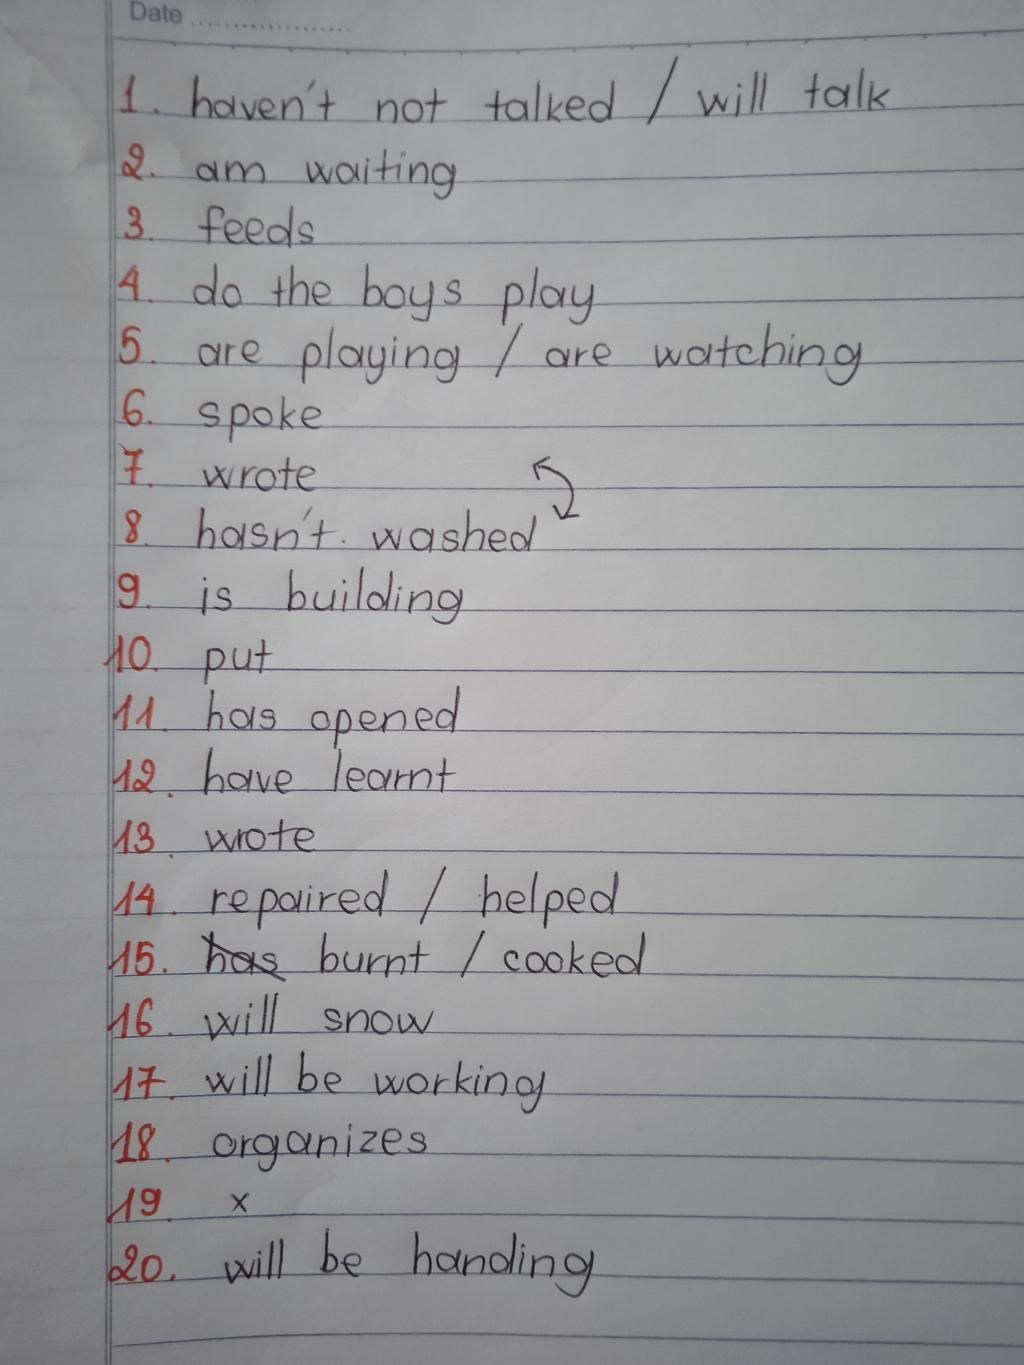 Date ....................
1. haven't not talked / will talk
2. am waiting
3. feeds
4. do the boys play
5. are playing / are watching
6. spoke
7. wrote
8. hasn't. washed
9. is building
10. put
11. has opened
12. have learnt
13. wrote
14. repaired / helped
15. has burnt / cooked
16. will snow
17. will be working
18. organizes
19. x
20. will be handing